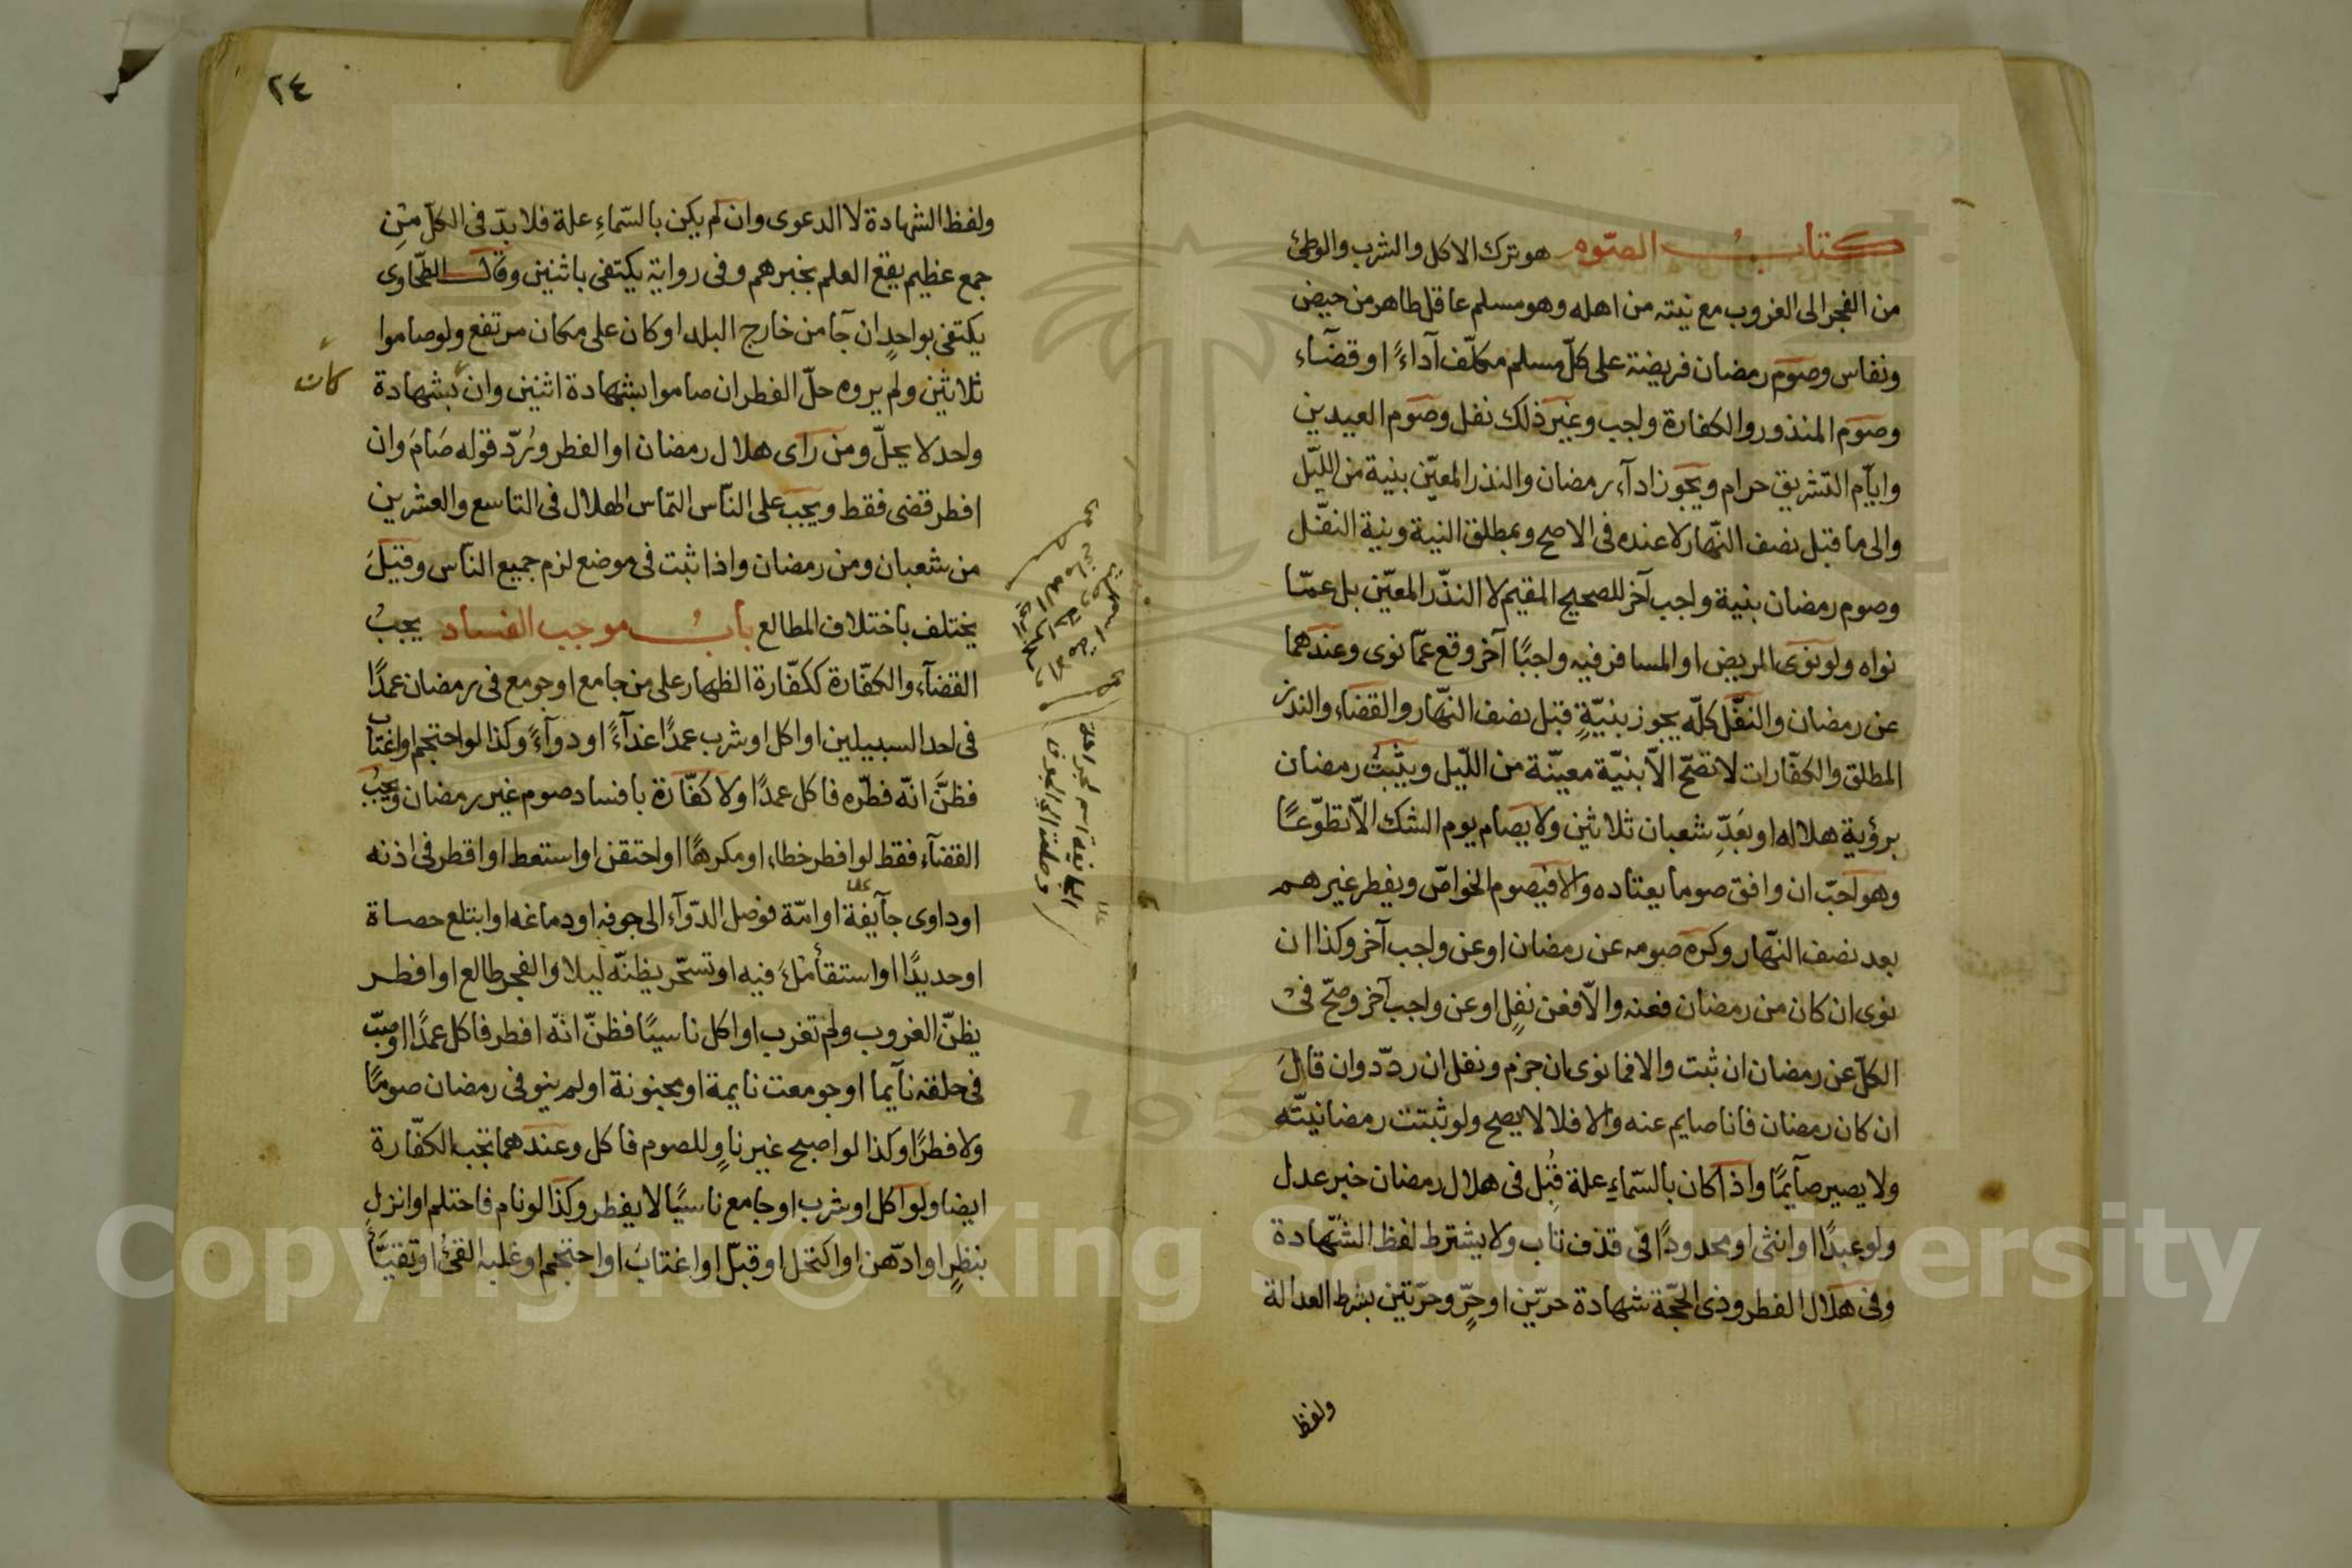 كتابُ الصّوم هو ترك الاكل والشرب والوطئ
من الفجر الى الغروب مع نيته من اهله وهو مسلم عاقل طاهر من حيض
ونفاس وصوم رمضان فريضة على كلّ مسلم مكلّف آداءً او قضآء
وصوم المنذور والكفارة واجب وغير ذلك نفل وصوم العيدين
وايّام التشريق حرام ويجوز ادآء رمضان والنذر المعيّن بنية من اللّيل
والى ما قبل نصف النّهار لا عنده فى الاصح وبمطلق النية وبنية النفل
وصوم رمضان بنية واجب آخر للصحيح المقيم لا النذر المعيّن بل عمّا
نواه ولو نوى المريض او المسافر فيه واجبًا آخر وقع عمّا نوى وعندهما
عن رمضان والنفّل كلّه يجوز بنيّةٍ قبل نصف النّهار والقضاء والنذر
المطلق والكفّارات لا تصّح الاّ بنيّة معيّنة من اللّيل ويثبتُ رمضان
برؤية هلاله او بعَدِّ شعبان ثلاثين ولا يصام يوم الشك الاّ تطوّعًا
وهو احبّ ان وافق صوما يعتاده والا فيصوم الخواصّ ويفطر غيرهم
بعد نصف النّهار وكره صومه عن رمضان او عن واجب آخر وكذا ان
نوى ان كان من رمضان فعنه والاّ فعن نفلٍ او عن واجب آخر وصحّ فى
الكلّ عن رمضان ان ثبت والا فما نوى ان جزم ونفل ان ردّد وان قالَ
ان كان رمضان فانا صايم عنه والا فلا لا يصح ولو ثبتت رمضانيّته
ولا يصير صآيمًا واذا كان بالسّماءِ علة قُبِل فى هلال رمضان خبر عدل
ولو عبدًا او انثى او محدودًا فى قذف تاب ولا يشترط لفظ الشّهادة
وفى هلال الفطر وذى الحجّة شهادة حرّين او حرٍّ وحرّتين بشرط العدالة
ولفظ
٢٤
ولفظ الشهادة لا الدعوى وان لم يكن بالسّماءِ علة فلا بدّ فى الكلّ من
جمع عظيم يقع العلم بخبرهم وفى رواية يكتفى باثنين وقال الطّحاوى
يكتفى بواحدٍ ان جآ من خارج البلد او كان على مكان مرتفع ولو صاموا
ثلاثين ولم يروه حلّ الفطر ان صاموا بشهادة اثنين وان بشهادة
كان
واحد لا يحلّ ومن راى هلال رمضان او الفطر ورُدّ قوله صَامَ وان
افطر قضى فقط ويجب على النّاس التماس الهلال فى التاسع والعشرين
من شعبان ومن رمضان واذا ثبت فى موضع لزم جميع النّاس وقيلَ
يختلف باختلاف المطالع بابُ موجب الفساد يجبُ
القضآء والكفّارة ككفّارة الظهار على من جامع او جومع فى رمضان عمدًا
فى احد السبيلين او اكل او شرب عمدًا غذآءً او دوآءً وكذا لو احتجم او اغتاب
فظنَّ انّه فطّره فاكل عمدًا ولا كفّارة بافساد صوم غير رمضان ويجبُ
القضآء فقط لو افطر خطاء او مكرهًا او احتقن او استعط او اقطر فى اذنه
او داوى جآيفة او امّة فوصل الدّوآء الى جوفه او دماغه او ابتلع حصاة
او حديدًا او استقأ ملءَ فيه او تسحّر يظنّه ليلا والفجر طالع او افطر
يظنّ الغروب ولم تغرب او اكل ناسيًا فظنّ انّه افطر فاكل عمدًا او صبّ
فى حلقه نآيما او جومعت نايمة او مجنونة او لم ينو فى رمضان صومًا
ولا فطرًا وكذا لو اصبح غير ناوٍ للصوم فاكل وعندهما تجب الكفّارة
ايضا ولو اكل او شرب او جامع ناسيًا لا يفطر وكذا لو نام فاحتلم او انزل
بنظرٍ او ادّهن او اكتحل او قبّل او اغتابَ او احتجم او غلبه القئ او تقيّأ
Copyright © King Saud University
195